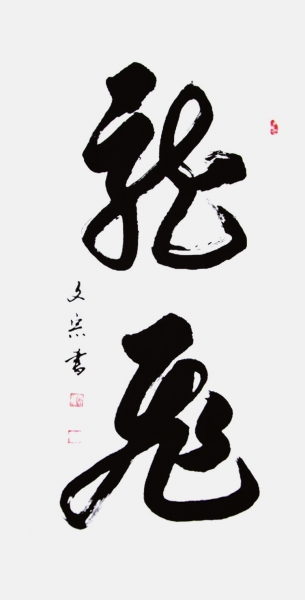 龍飛
文書